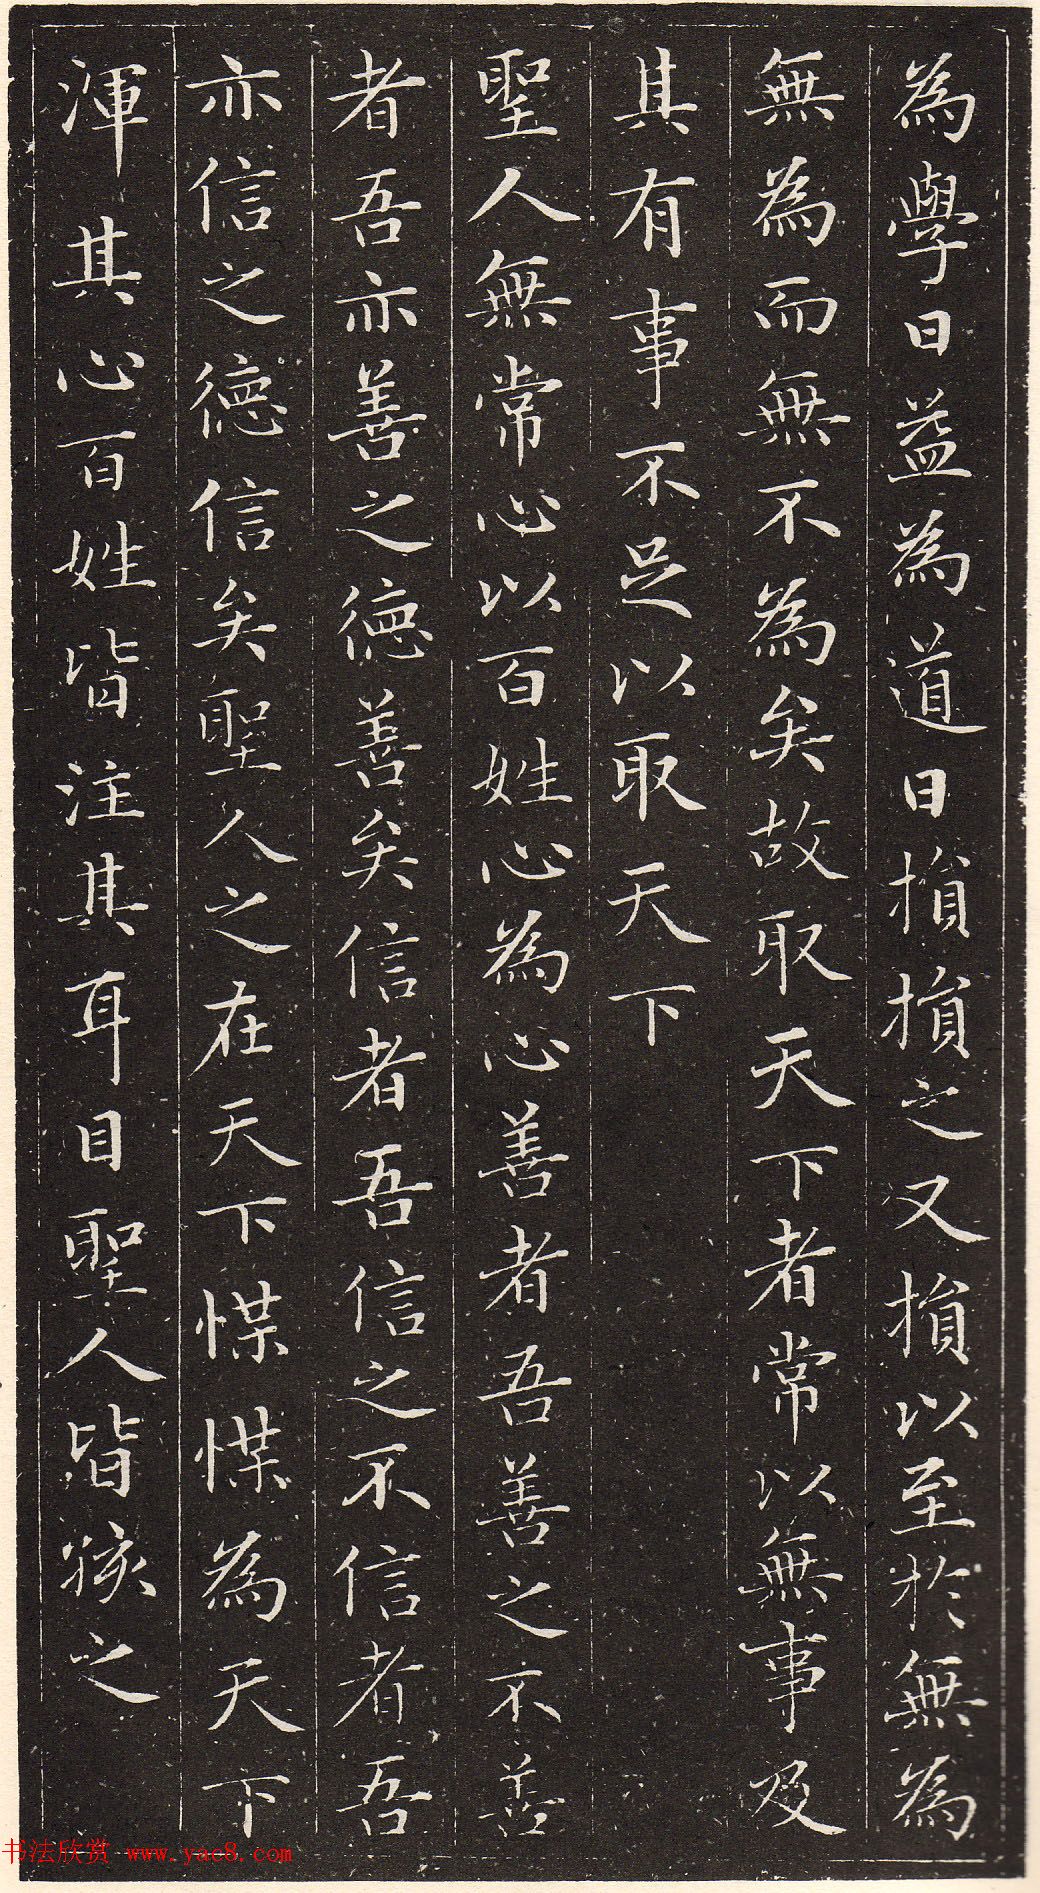 為學日益為道日損損之又損以至於無為
無為而無不為矣故取天下者常以無事及
其有事不足以取天下
聖人無常心以百姓心為心善者吾善之不善
者吾亦善之德善矣信者吾信之不信者吾
亦信之德信矣聖人之在天下惵惵為天下
渾其心百姓皆注其耳目聖人皆孩之
书法欣赏 www.yac8.com